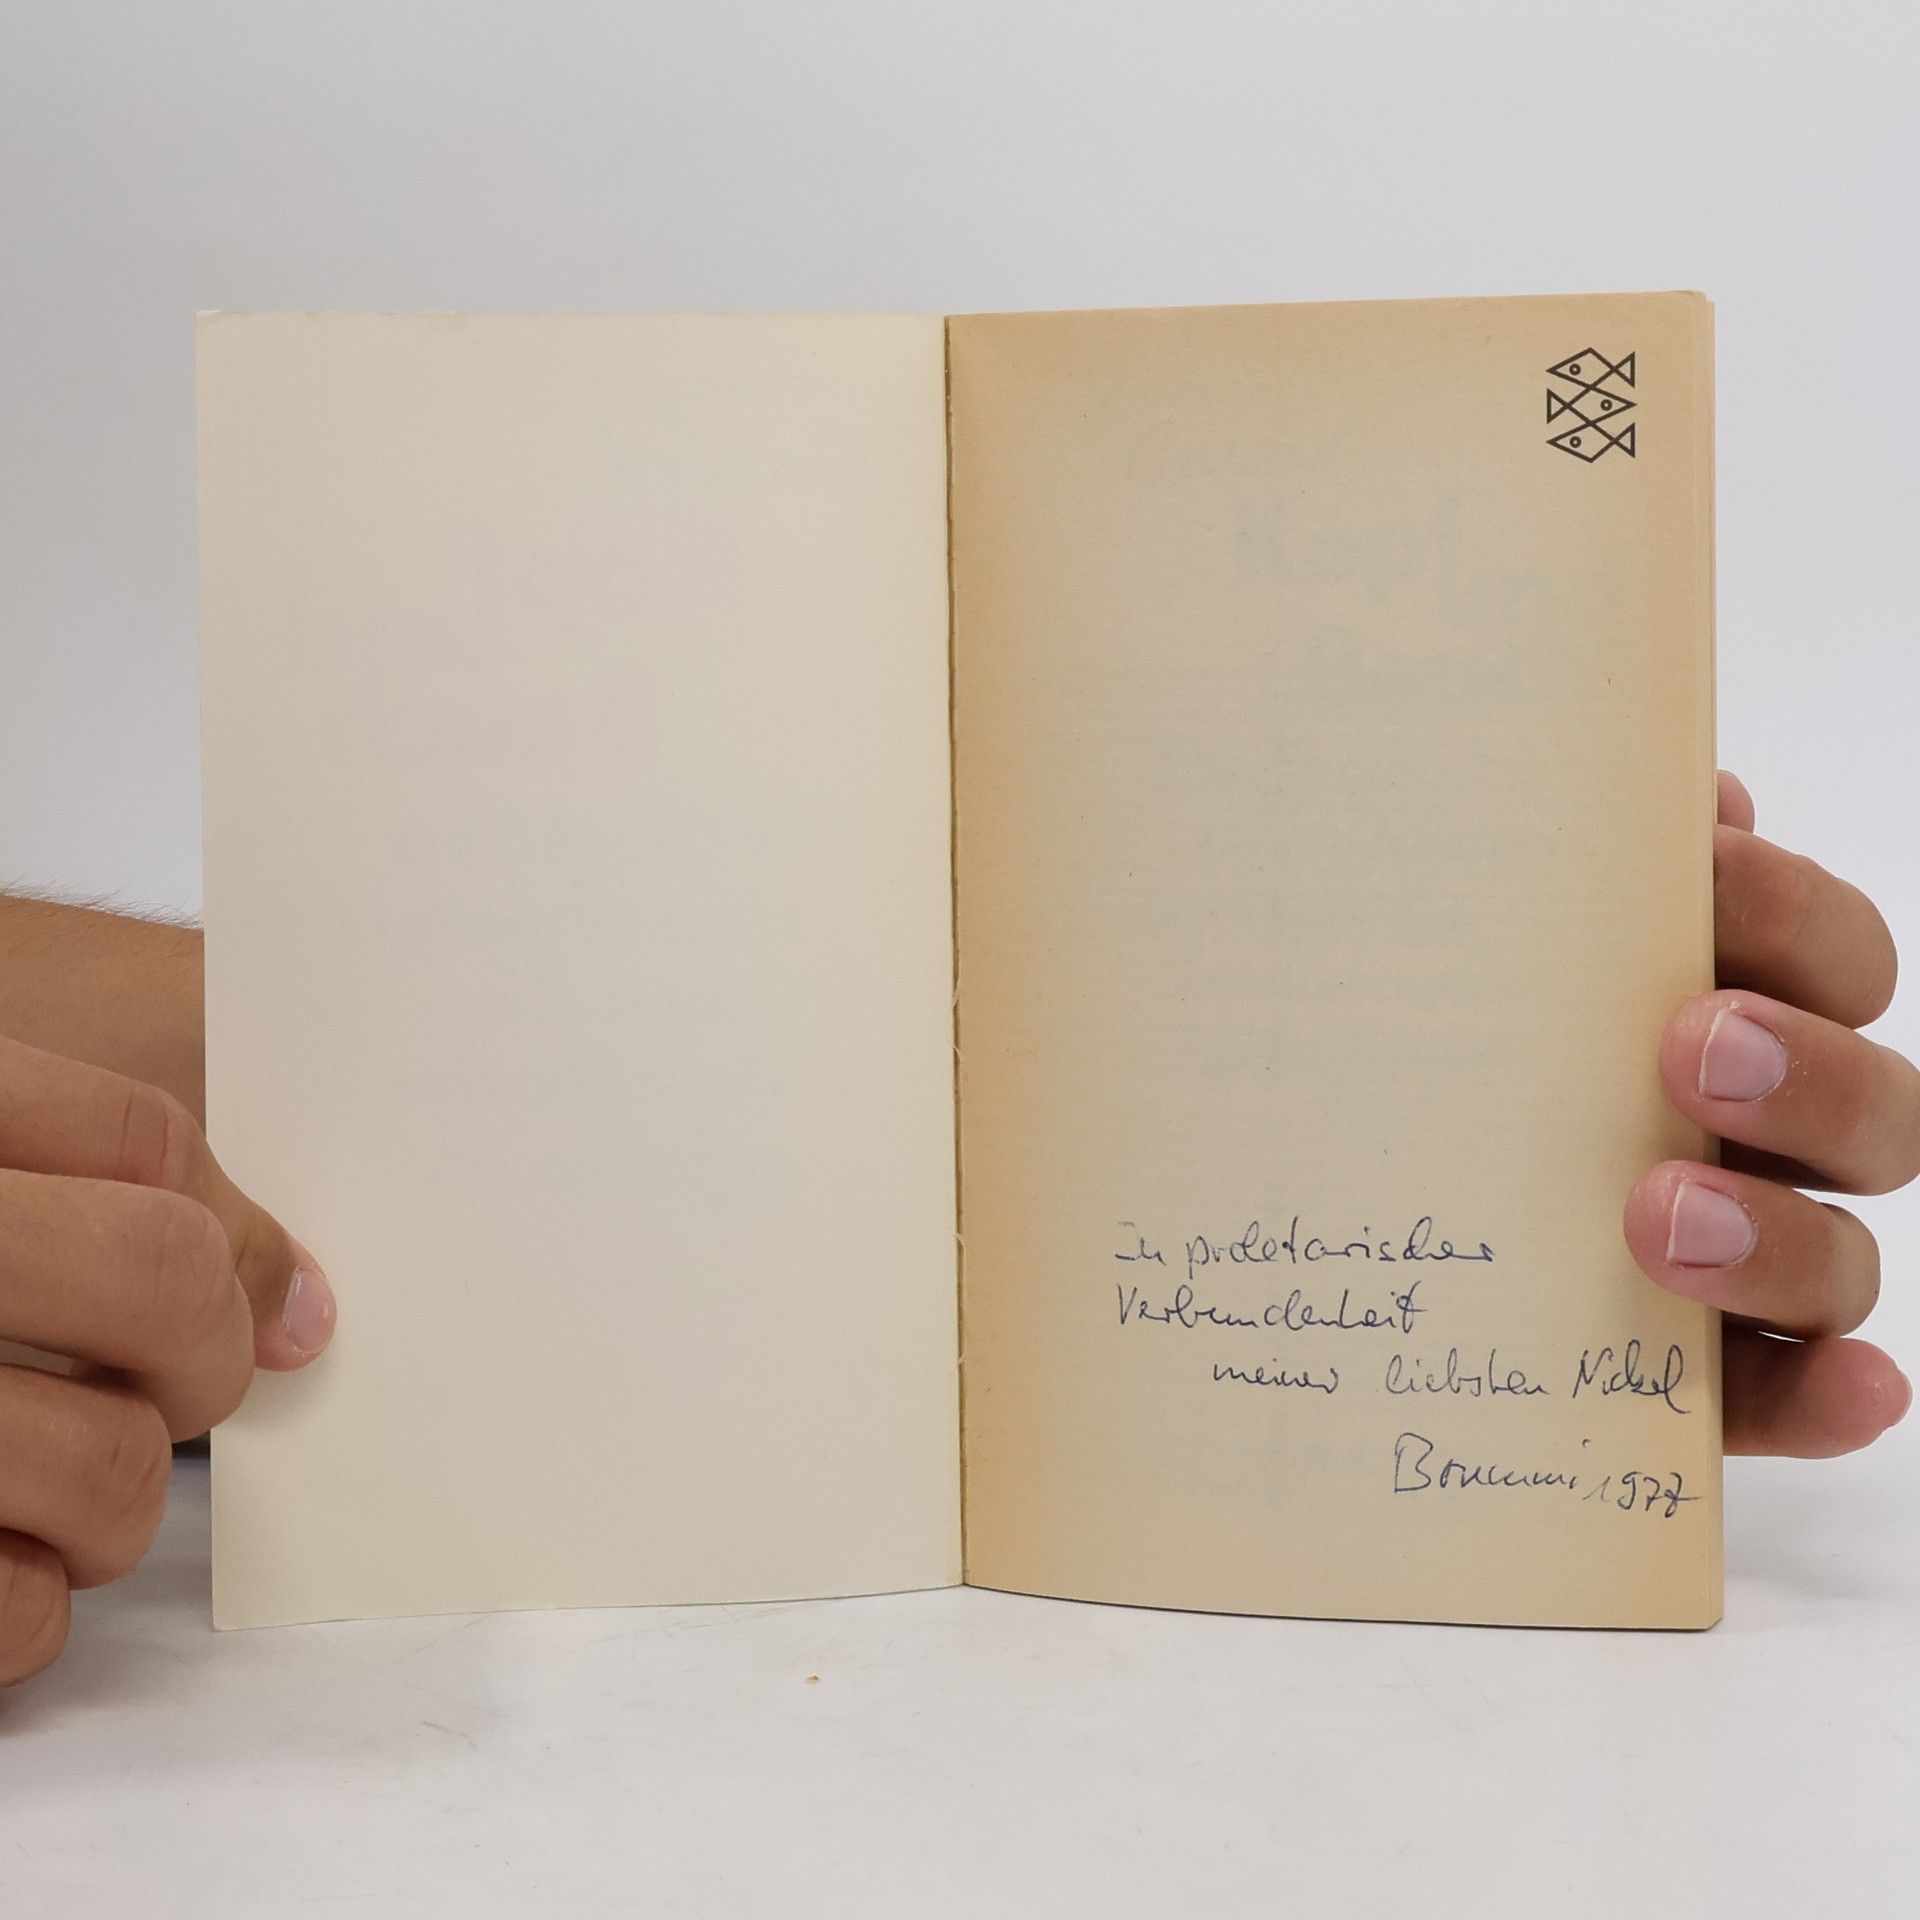 In proletarischer
Verbundenheit
meiner liebsten Nickel
Bommi 1977